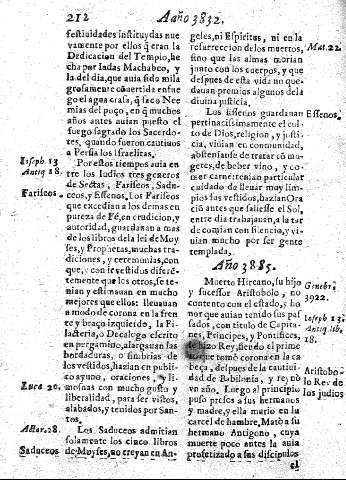 212
Año 3832.
festiuidades instituydas nue
uamente por ellos q̃ eran la
Dedicacion del Templo, he
cha por Iudas Machabeo, y
la del dia, que auia sido mila
grosamente cõuertida enfue
go el agua crasa, q̃ sacò Nee
mias del poço, en q̃ muchos
años antes auian puesto el
fuego sagrado los Sacerdo-
tes, quando fueron cautiuos
a Persia los Israelitas.
Por estos tiempos auia en
tre los Iudios tres generos
de Sectas, Fariseos, Sadu-
ceos, y Essenos, Los Fariseos
que excedian a los demas en
pureza de Fé, en erudicion, y
autoridad, guardauan a mas
de los libros de la lei de Moy
ses, y Prophetas, muchas tra-
diciones, y ceremonias, con
que, y con ir vestidos difere-
temente que los otros, se te-
nian y estimauan en mucho
mejores que ellos: lleuauan
a modo de corona en la fren
te y braço izquierdo, la Fi-
lacteria, o Decalogo escrito
en pergamino, alargauan las
bordaduras, o fimbrias de
los vestidos, hazian en publi
co ayuno, oraciones, y li-
mosnas con mucho gusto y
liberalidad, para ser vistos,
alabados, y tenidos por San-
tos.
Los Saduceos admitian
solamente los cinco libros
de Moyses, no creyan en An-
Ioseph. 13
Antiq. 18.
Fariseos.
Luca 20.
Actor. 28.
Saduceos
geles, ni Espiritos, ni en la
resurreccion de los muertos,
sino que las almas morian
junto con los cuerpos, y que
despues de esta vida no que-
dauan premios algunos de la
diuina justicia.
Los Essenos guardauan
pertinacissimamente el cul-
to de Dios, religion, y justi-
cia, viuian en comunidad,
abstenianse de tratar cõ mu-
geres, de beber vino, y co-
mer carne tenian particular
cuidado de lleuar muy lim-
pios sus vestidos, hazian Ora
ciõ antes que saliesse el Sol,
entre dia trabajauan, a la tar
de comian con silencio, y vi-
uian mucho por ser gente
templada.
Año 3885.
Muerto Hircano, su hijo
y sucessor Aristobolo, no
contento con el estado, y ho
nor que auian tenido sus pas
sados, con titulo de Capita-
nes, Principes, y Pontifices,
se hizo Rey, siendo el prime
ro que tomò corona en la ca
beça, despues de la cautiui-
dad de Babilonia, y reynò
vn año. Luego al principio
puso presos a sus hermanos
y madre, y ella murio en la
carcel de hambre, Matò a su
hermano Antigono, cuya
muerte poco antes la auia
profetizado a sus discipulos
el
Mat. 22.
Essenos.
Genebr.
3922.
Ioseph 13.
Antiq. lib.
18.
Aristobo-
lo Re. de
los judios